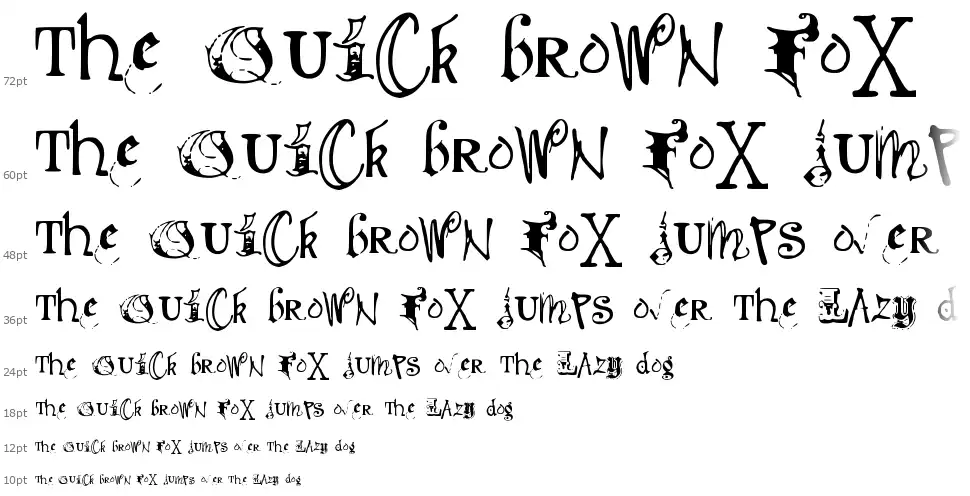 72pt The Quick brown fox
60pt The Quick brown fox jump
48pt The Quick brown fox jumps over
36pt The Quick brown fox jumps over The Lazy d
24pt The Quick brown fox jumps over The Lazy dog
18pt The Quick brown fox jumps over The Lazy dog
12pt The Quick brown fox jumps over The Lazy dog
10pt The Quick brown fox jumps over The Lazy dog